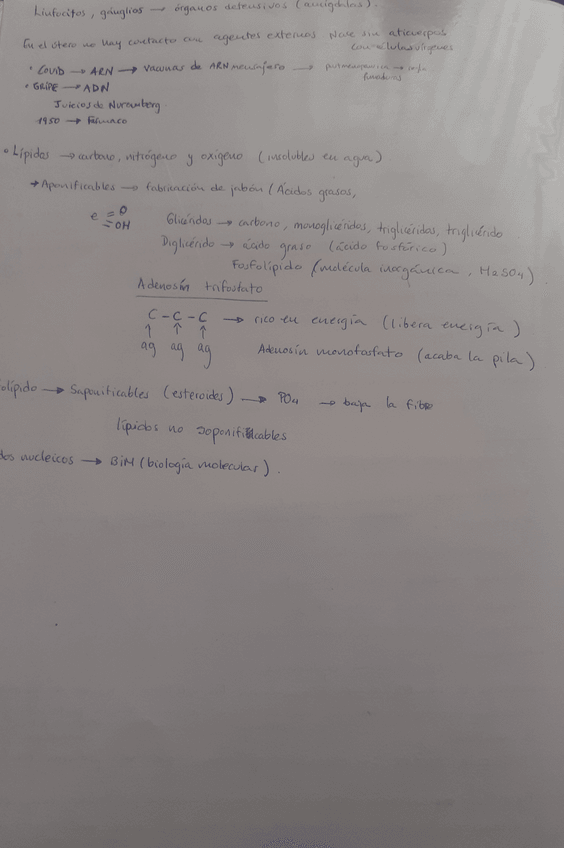 Linfocitos, gánglios → órganos defensivos (amígdalas).
En el útero no hay contacto con agentes externos Nace sin aticuerpos
con células vírgenes
• COVID → ARN → vacunas de ARN mensajero →
• GRIPE → ADN
Juicios de Nuremberg
1950 → Fármaco
• Lípidos → carbono, nitrógeno y oxígeno (insolubles en agua)
→ Aponificables → fabricación de jabón (Ácidos grasos,
e = O
= OH
Glicéridos → carbono, monoglicéridos, triglicéridos, triglicérido
Diglicérido → ácido graso (ácido fosfórico)
Fosfolípido (molécula inorgánica, H2SO4)
Adenosín trifosfato
C - C - C → rico en energía (libera energía)
↑ ↑ ↑
ag ag ag Adenosín monofosfato (acaba la pila)
olípido → Saponificables (esteroides) → PO4 → baja la
lípidos no saponificables
dos nucleicos → BiM (biología molecular).